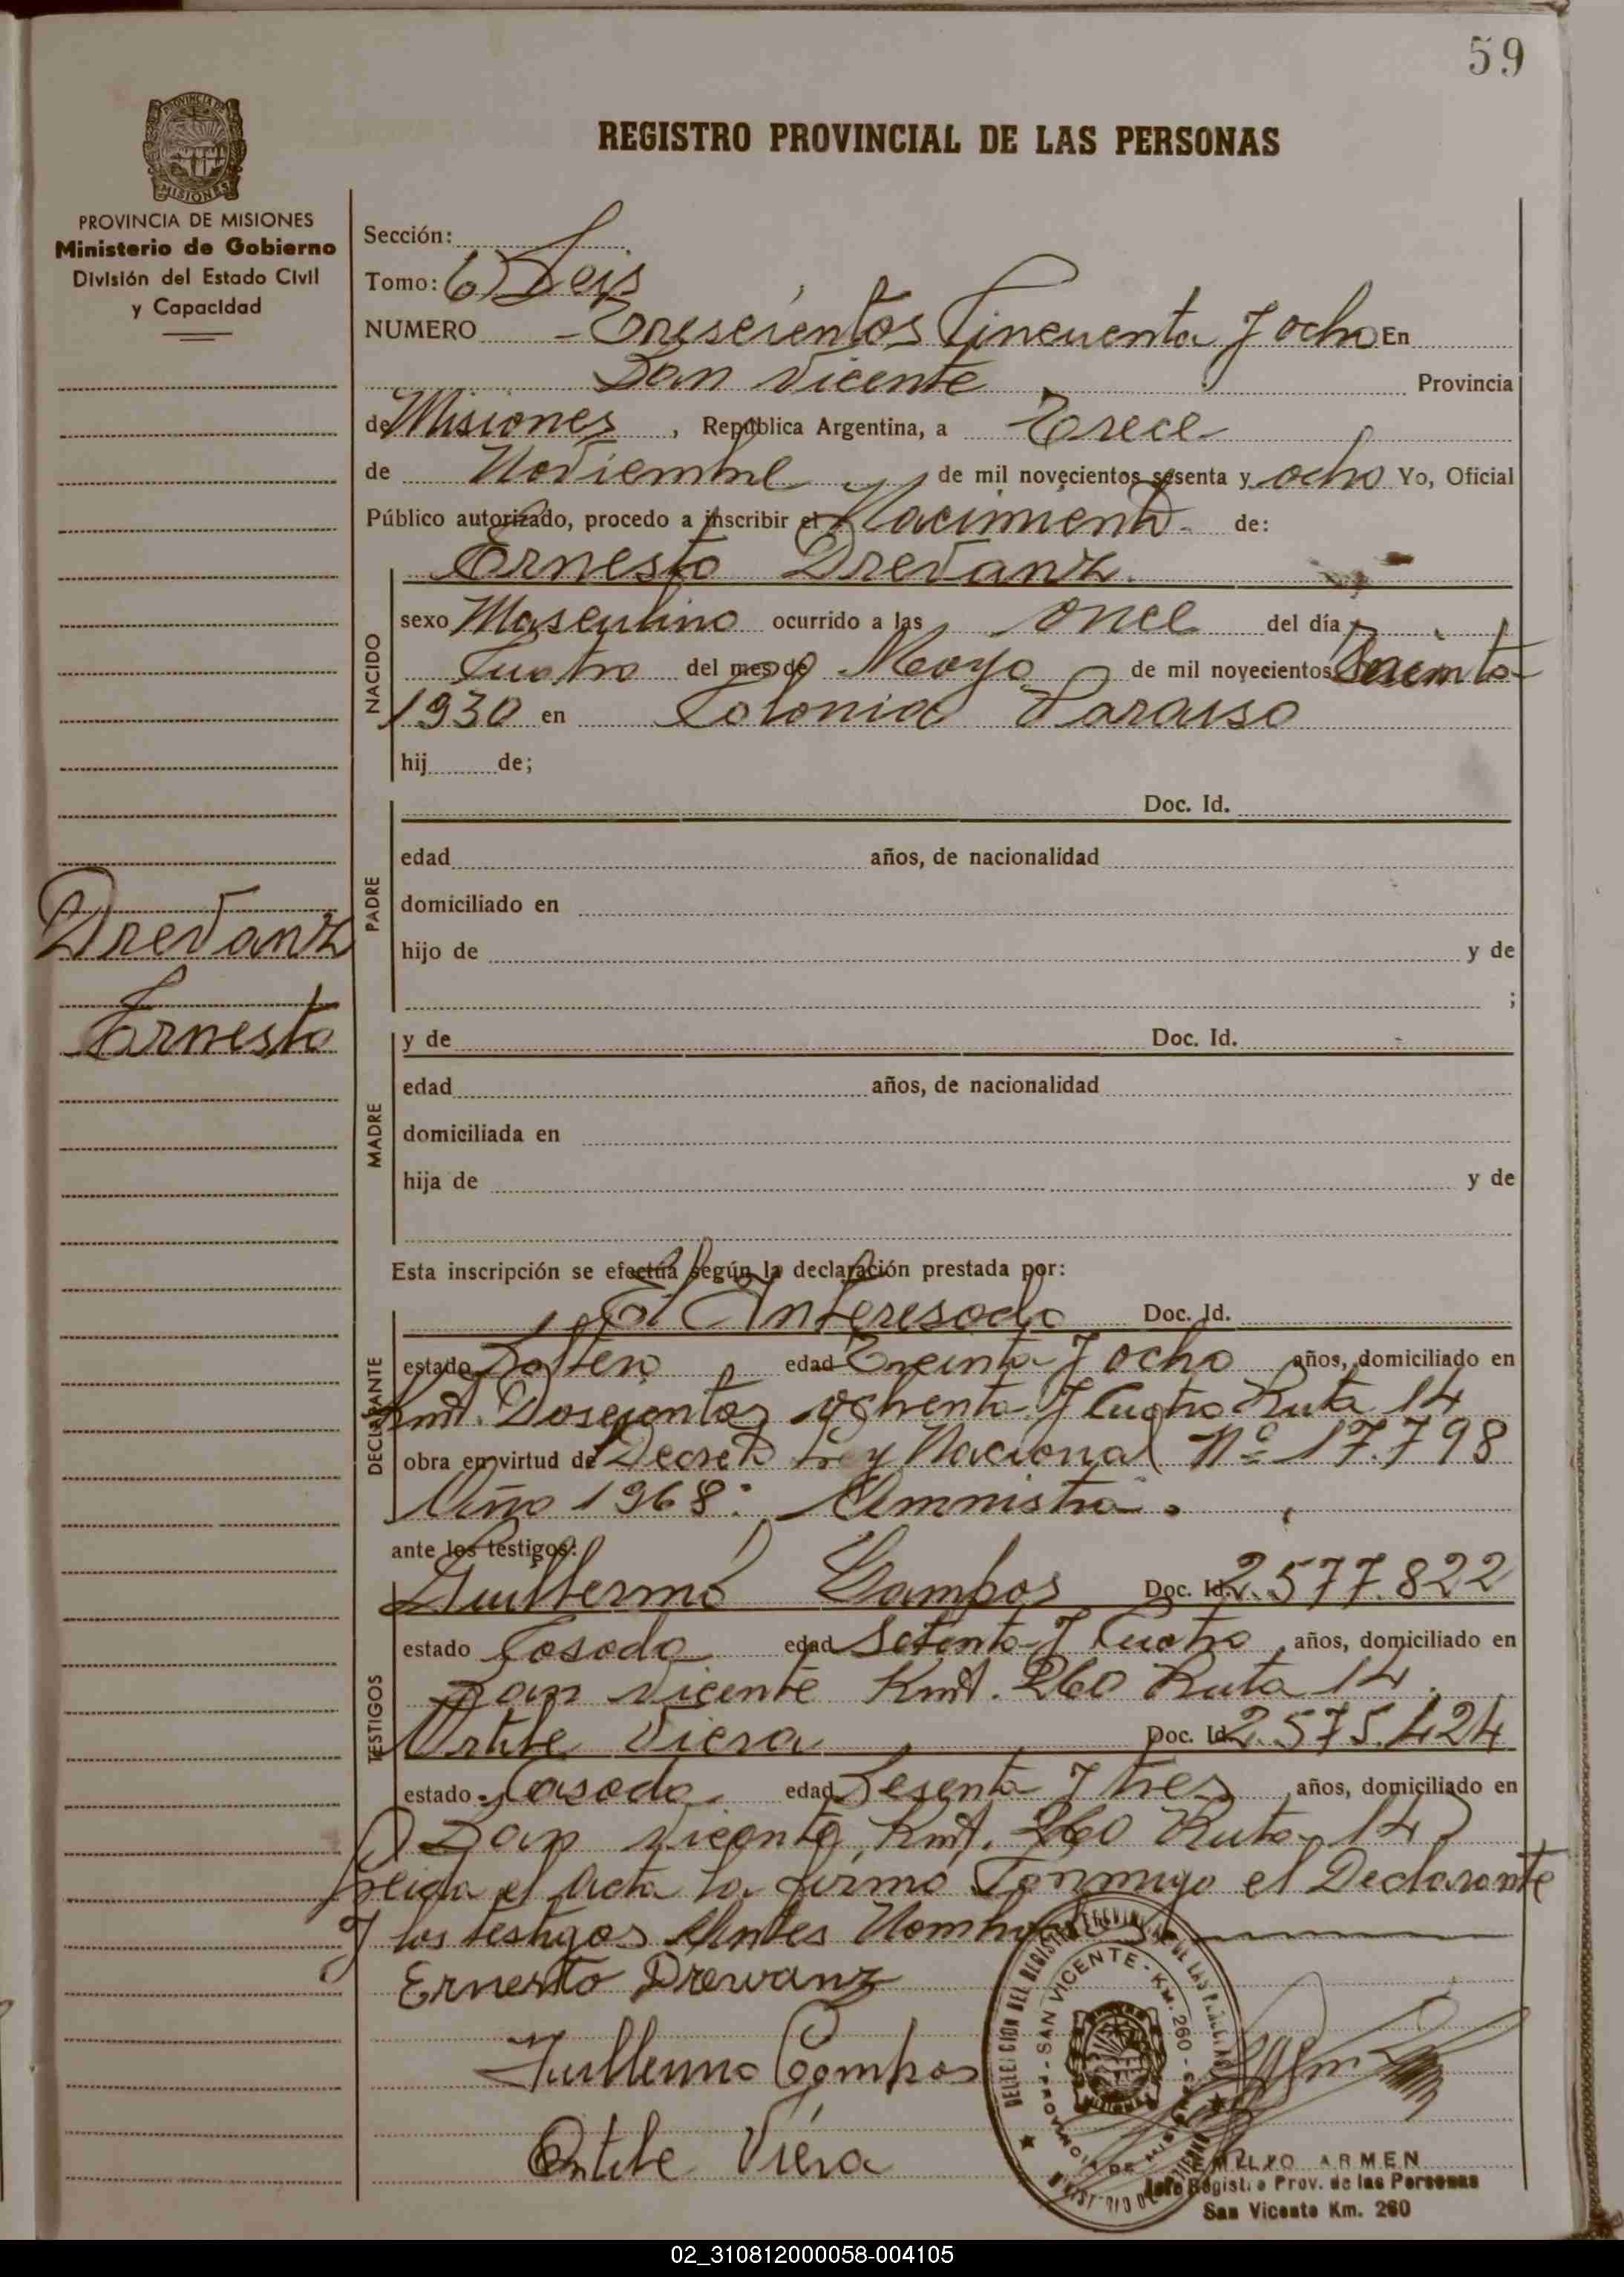 59
REGISTRO PROVINCIAL DE LAS PERSONAS
PROVINCIA DE MISIONES
MISIONES
PROVINCIA DE MISIONES
Ministerio de Gobierno
División del Estado Civil
y Capacidad
Drevanz
Ernesto
Sección:
Tomo: 6) Seis
NUMERO - Trescientos Cincuenta y ocho En
San Vicente Provincia
de Misiones, República Argentina, a Trece
de Noviembre de mil novecientos sesenta y ocho Yo, Oficial
Público autorizado, procedo a inscribir el Nacimiento de:
NACIDO
Ernesto Drevanz
sexo Masculino ocurrido a las once del día
Cuatro del mes de Mayo de mil novecientos Treinta
1930 en Colonia Paraiso
hij de;
PADRE
Doc. Id.
edad años, de nacionalidad
domiciliado en
hijo de y de
;
MADRE
y de Doc. Id.
edad años, de nacionalidad
domiciliada en
hija de y de
Esta inscripción se efectúa según la declaración prestada por:
DECLARANTE
El Interesado Doc. Id.
estado Soltero edad Treinta y ocho años, domiciliado en
Kmt. Doscientos ochenta y Cuatro Ruta 14
obra en virtud de Decreto Ley Nacional Nº 17.798
Año 1968: Amnistia.
ante los testigos:
TESTIGOS
Guillermo Campos Doc. Id. 2.577.822
estado Casado edad Setenta y Cuatro años, domiciliado en
San Vicente Kmt. 260 Ruta 14.
Viera Doc. Id. 2.575.424
estado Casado edad Sesenta y tres años, domiciliado en
San Vicente Kmt. 260 Ruta 14
Leida el Acta la firmo Conmigo el Declarante
y los testigos Antes
Ernesto Drewanz
Guillermo Campos
Viera
SAN VICENTE - KM. 260 - PROVINCIA DE MISIONES
ARMEN
Jefe Registro Prov. de las Personas
San Vicente Km. 260
02_310812000058-004105